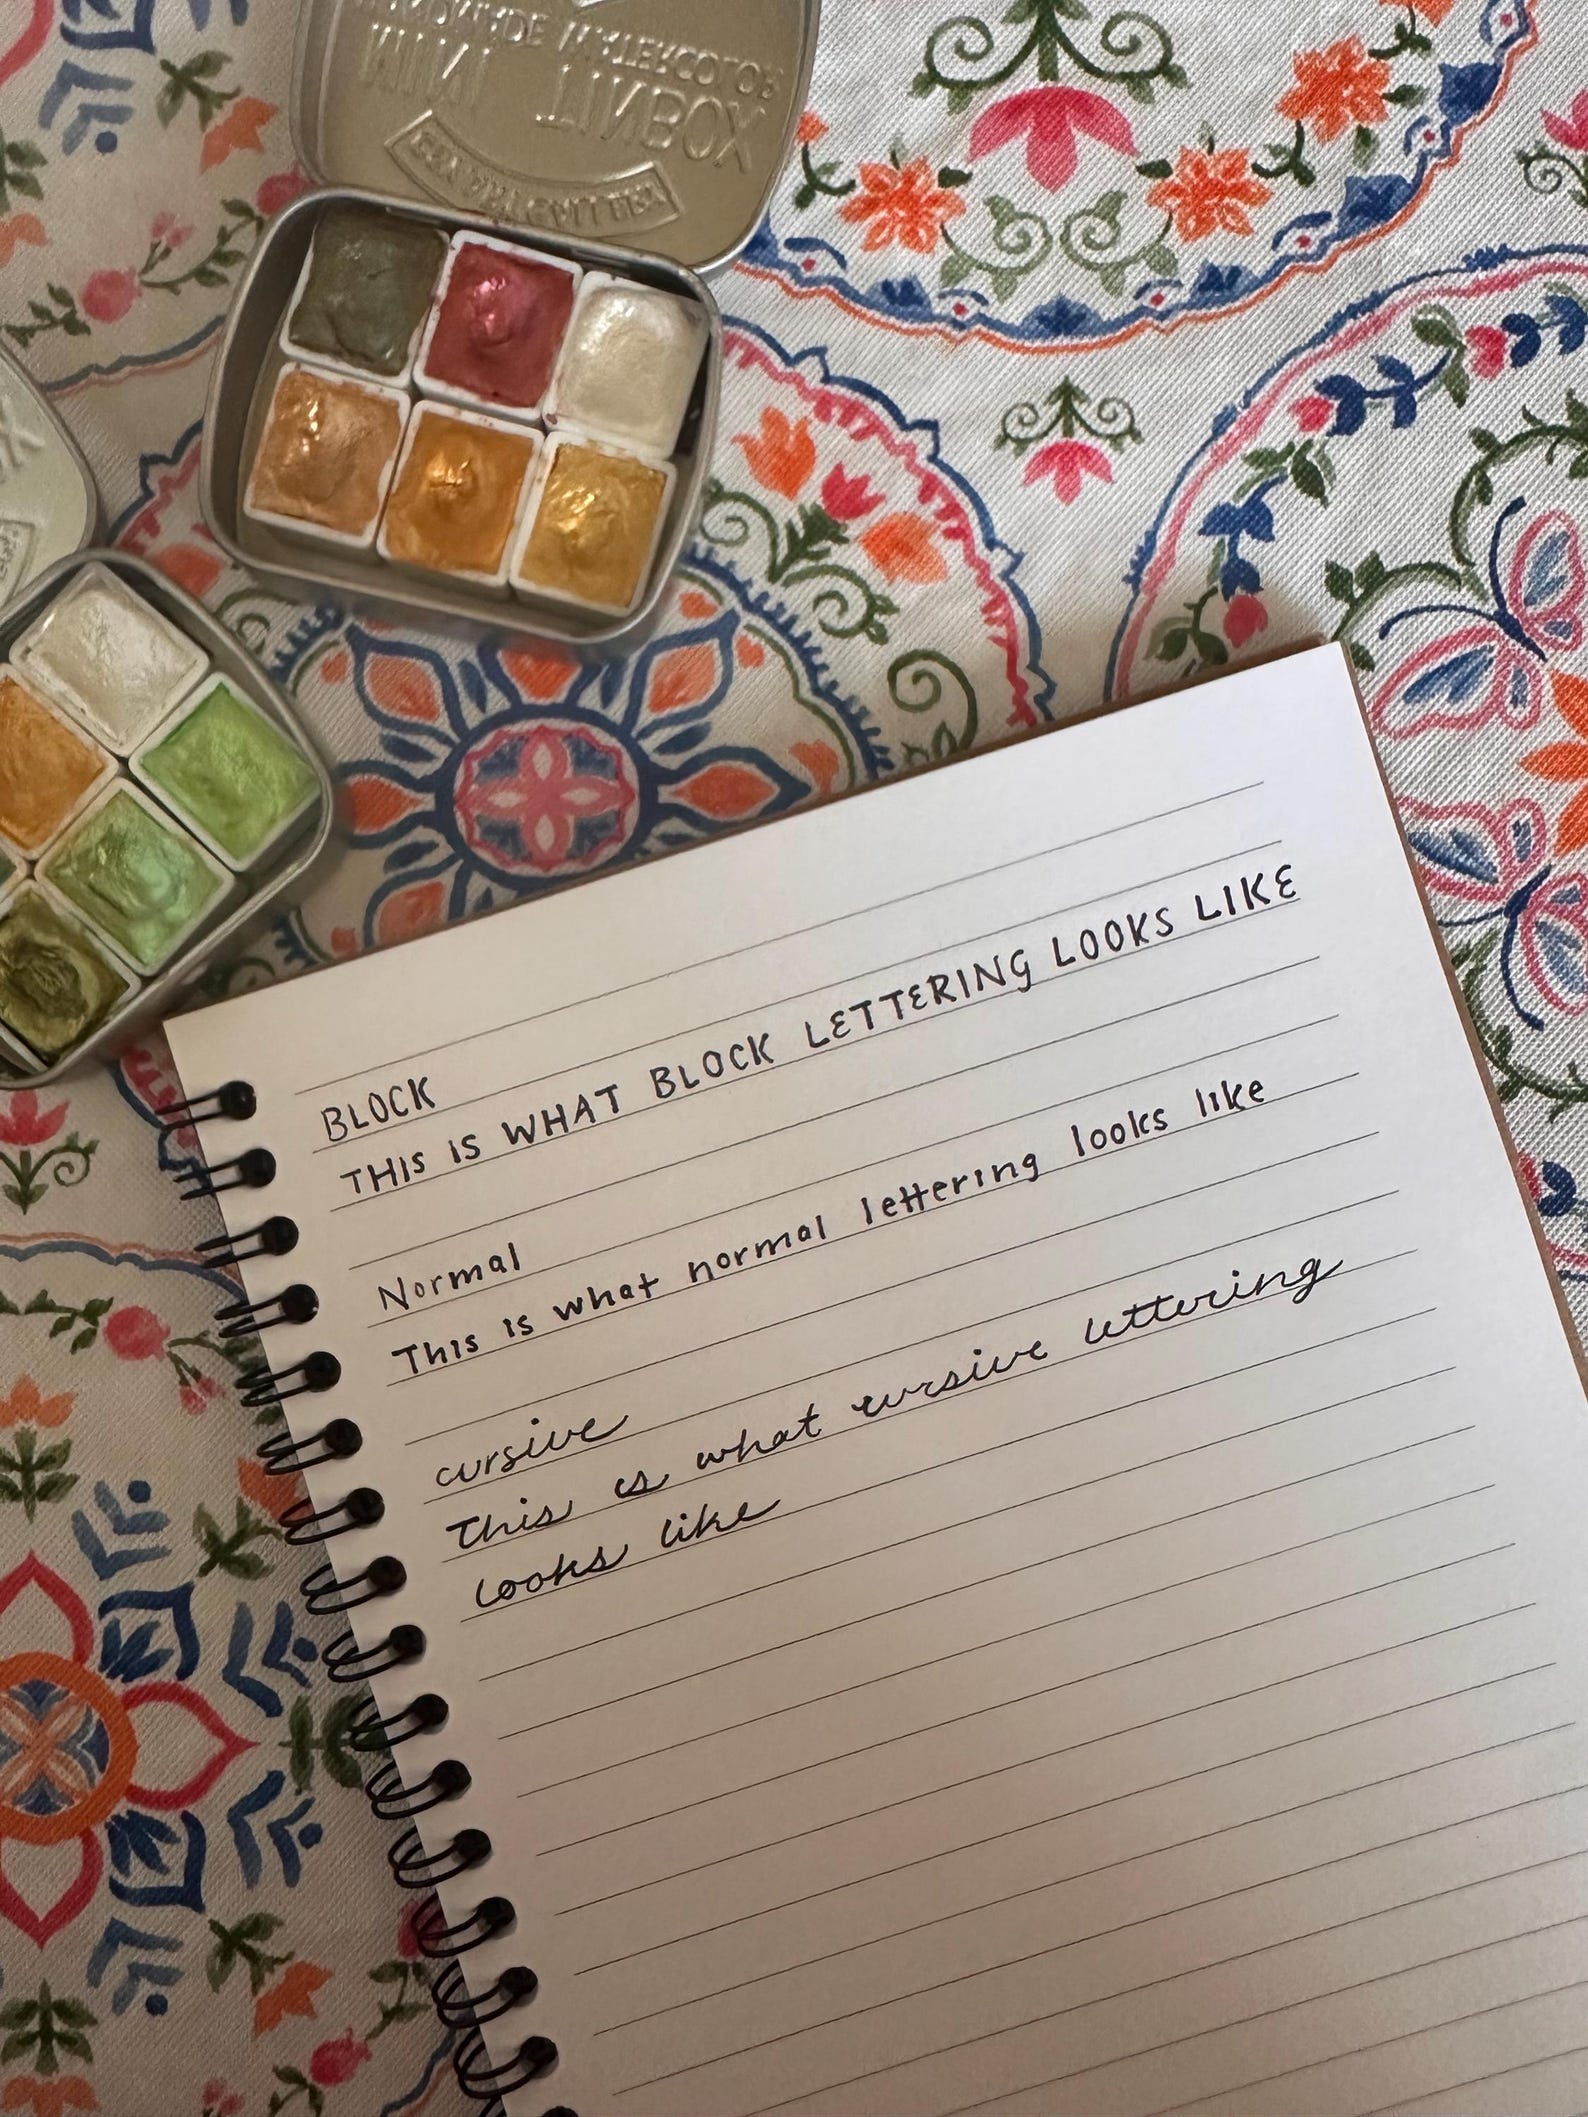 MINI TINBOX
BLOCK
THIS IS WHAT BLOCK LETTERING LOOKS LIKE
Normal
This is what normal lettering looks like
cursive
This is what cursive lettering
looks like